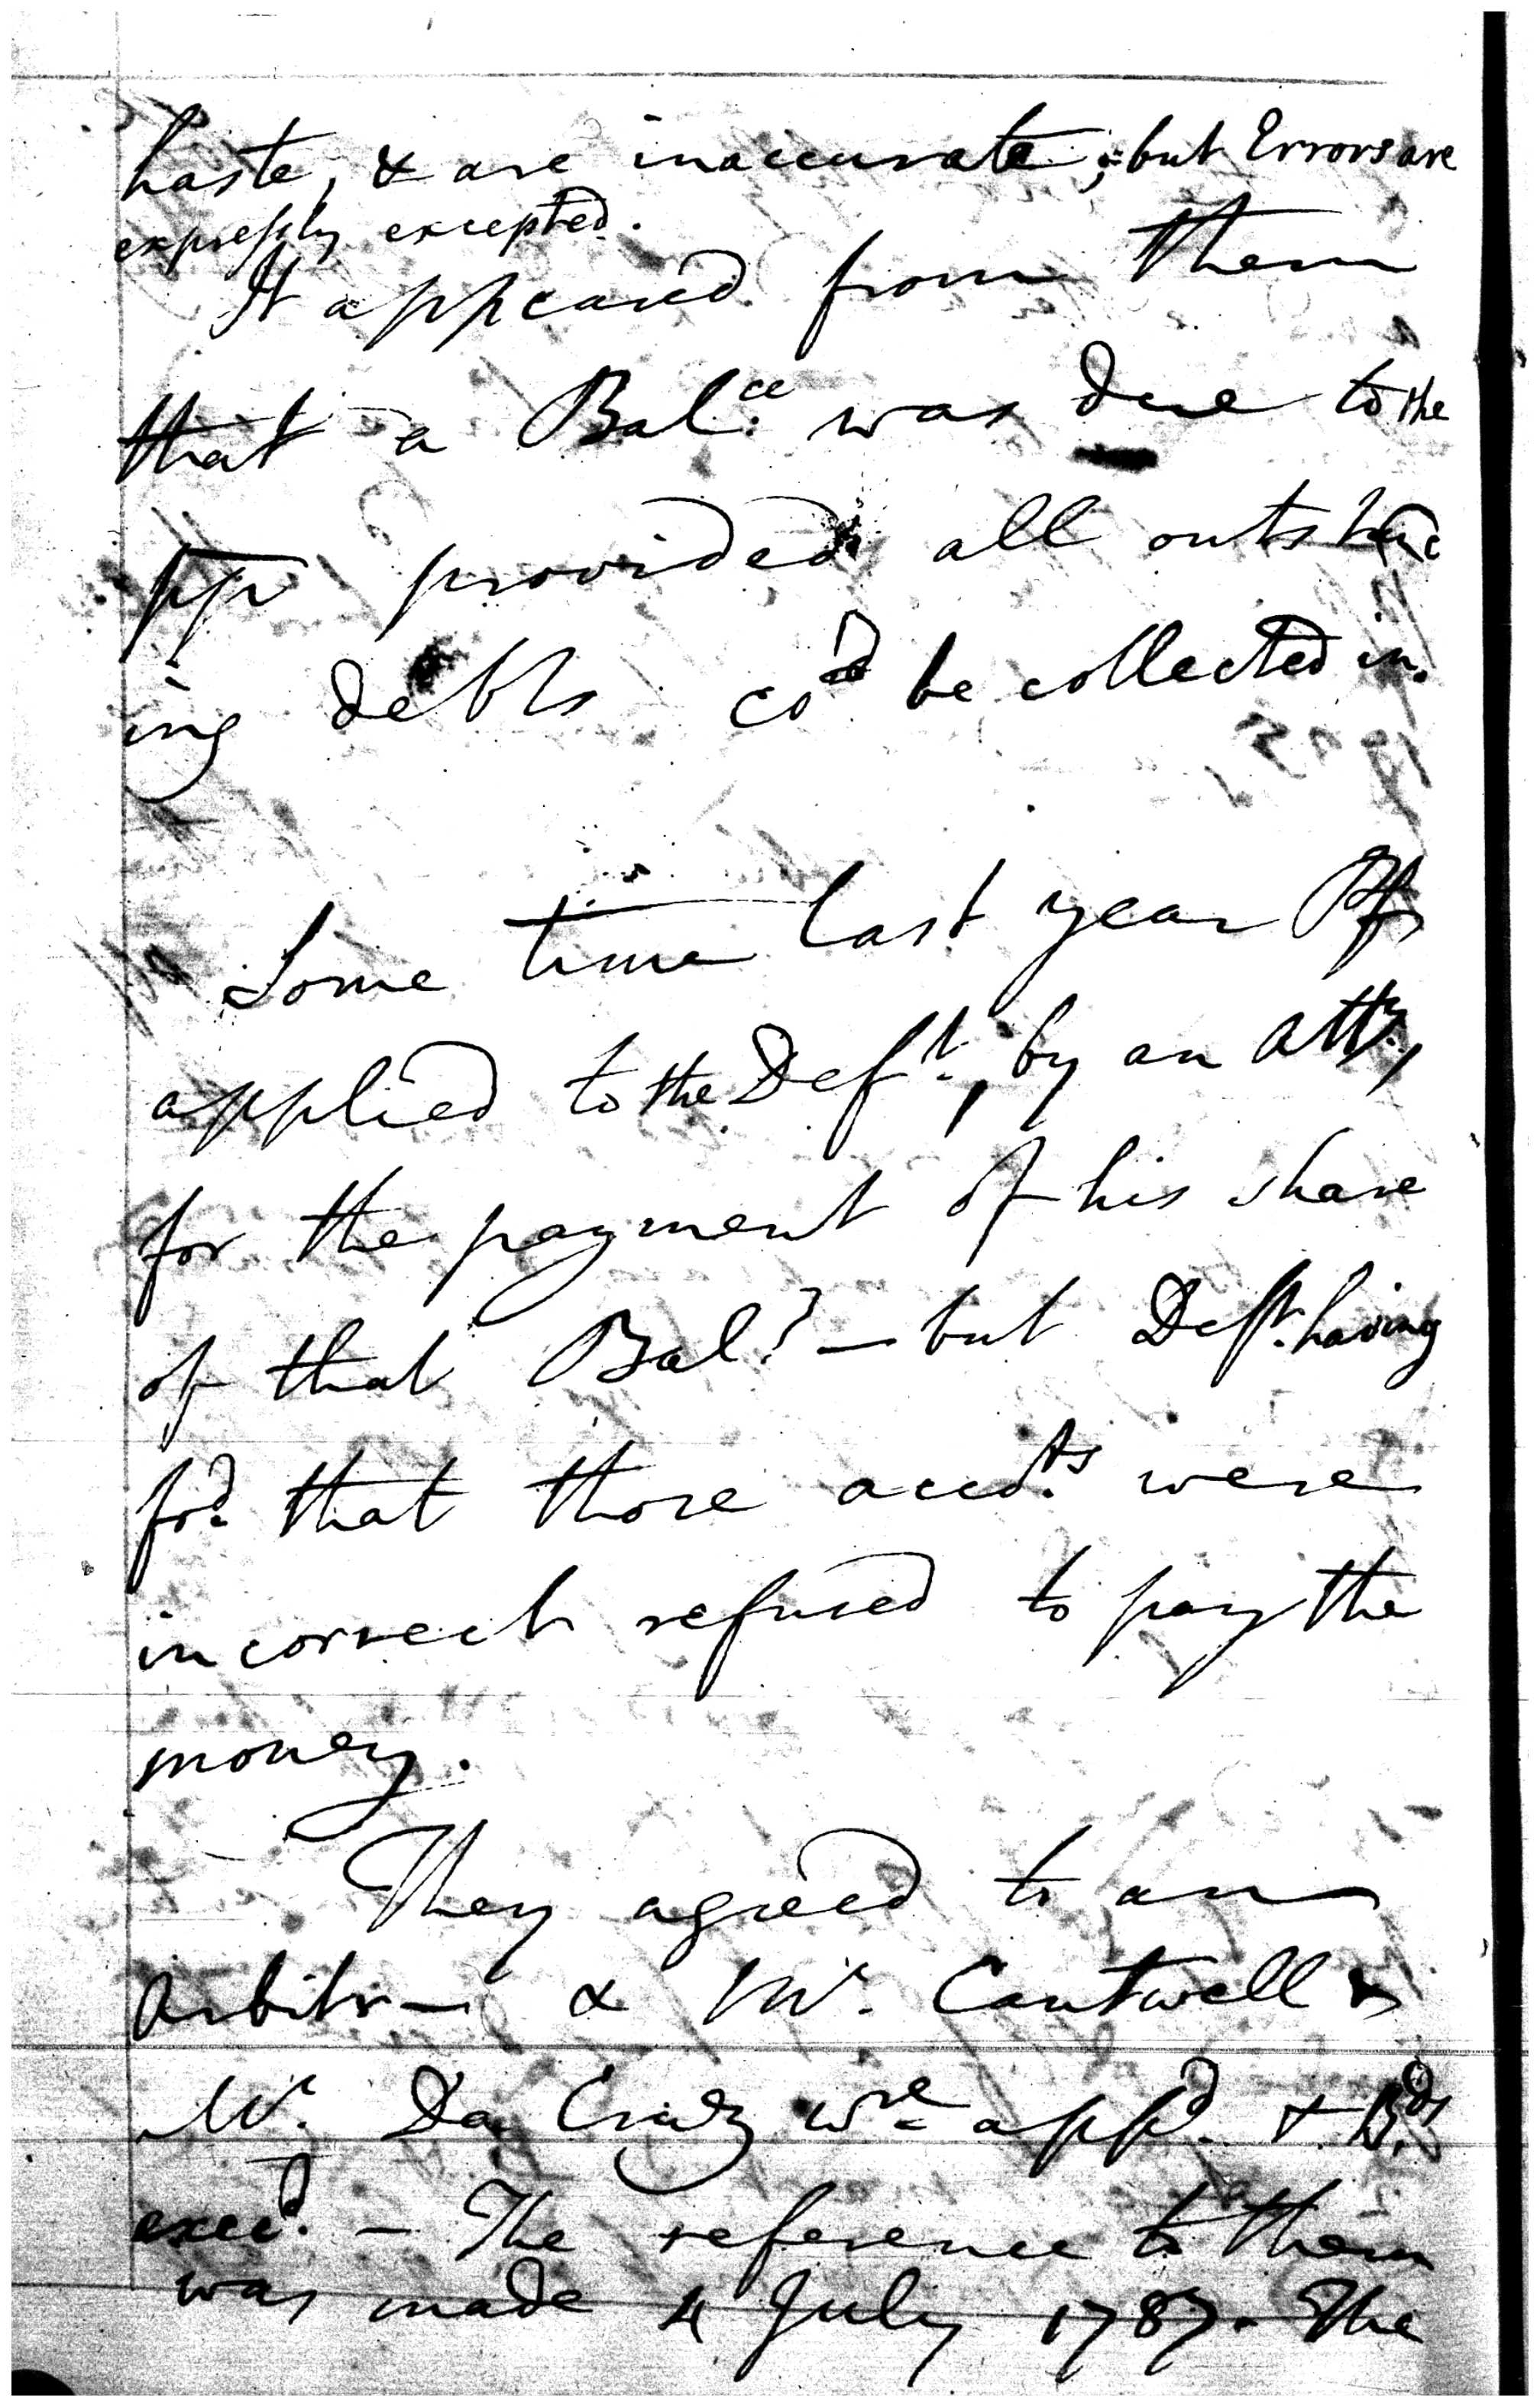 haste, & are inaccurate; but Errors are
expressly excepted.
It appeared from them
that a Bal.ce was due to the
pp provided all outstand
ing debts cod be collected in.
Some time last year Plf
applied to the Deft., by an Atty,
for the payment of his share
of that Bal.? — but Deft. having
fod. that those accots. were
incorrect refused to pay the
money.
They agreed to an
Arbitr— & Mr. Cantwell &
Mr. Da Cruz wre appd. & Bds
execd. — The reference to them
was made 4 July 1787. The